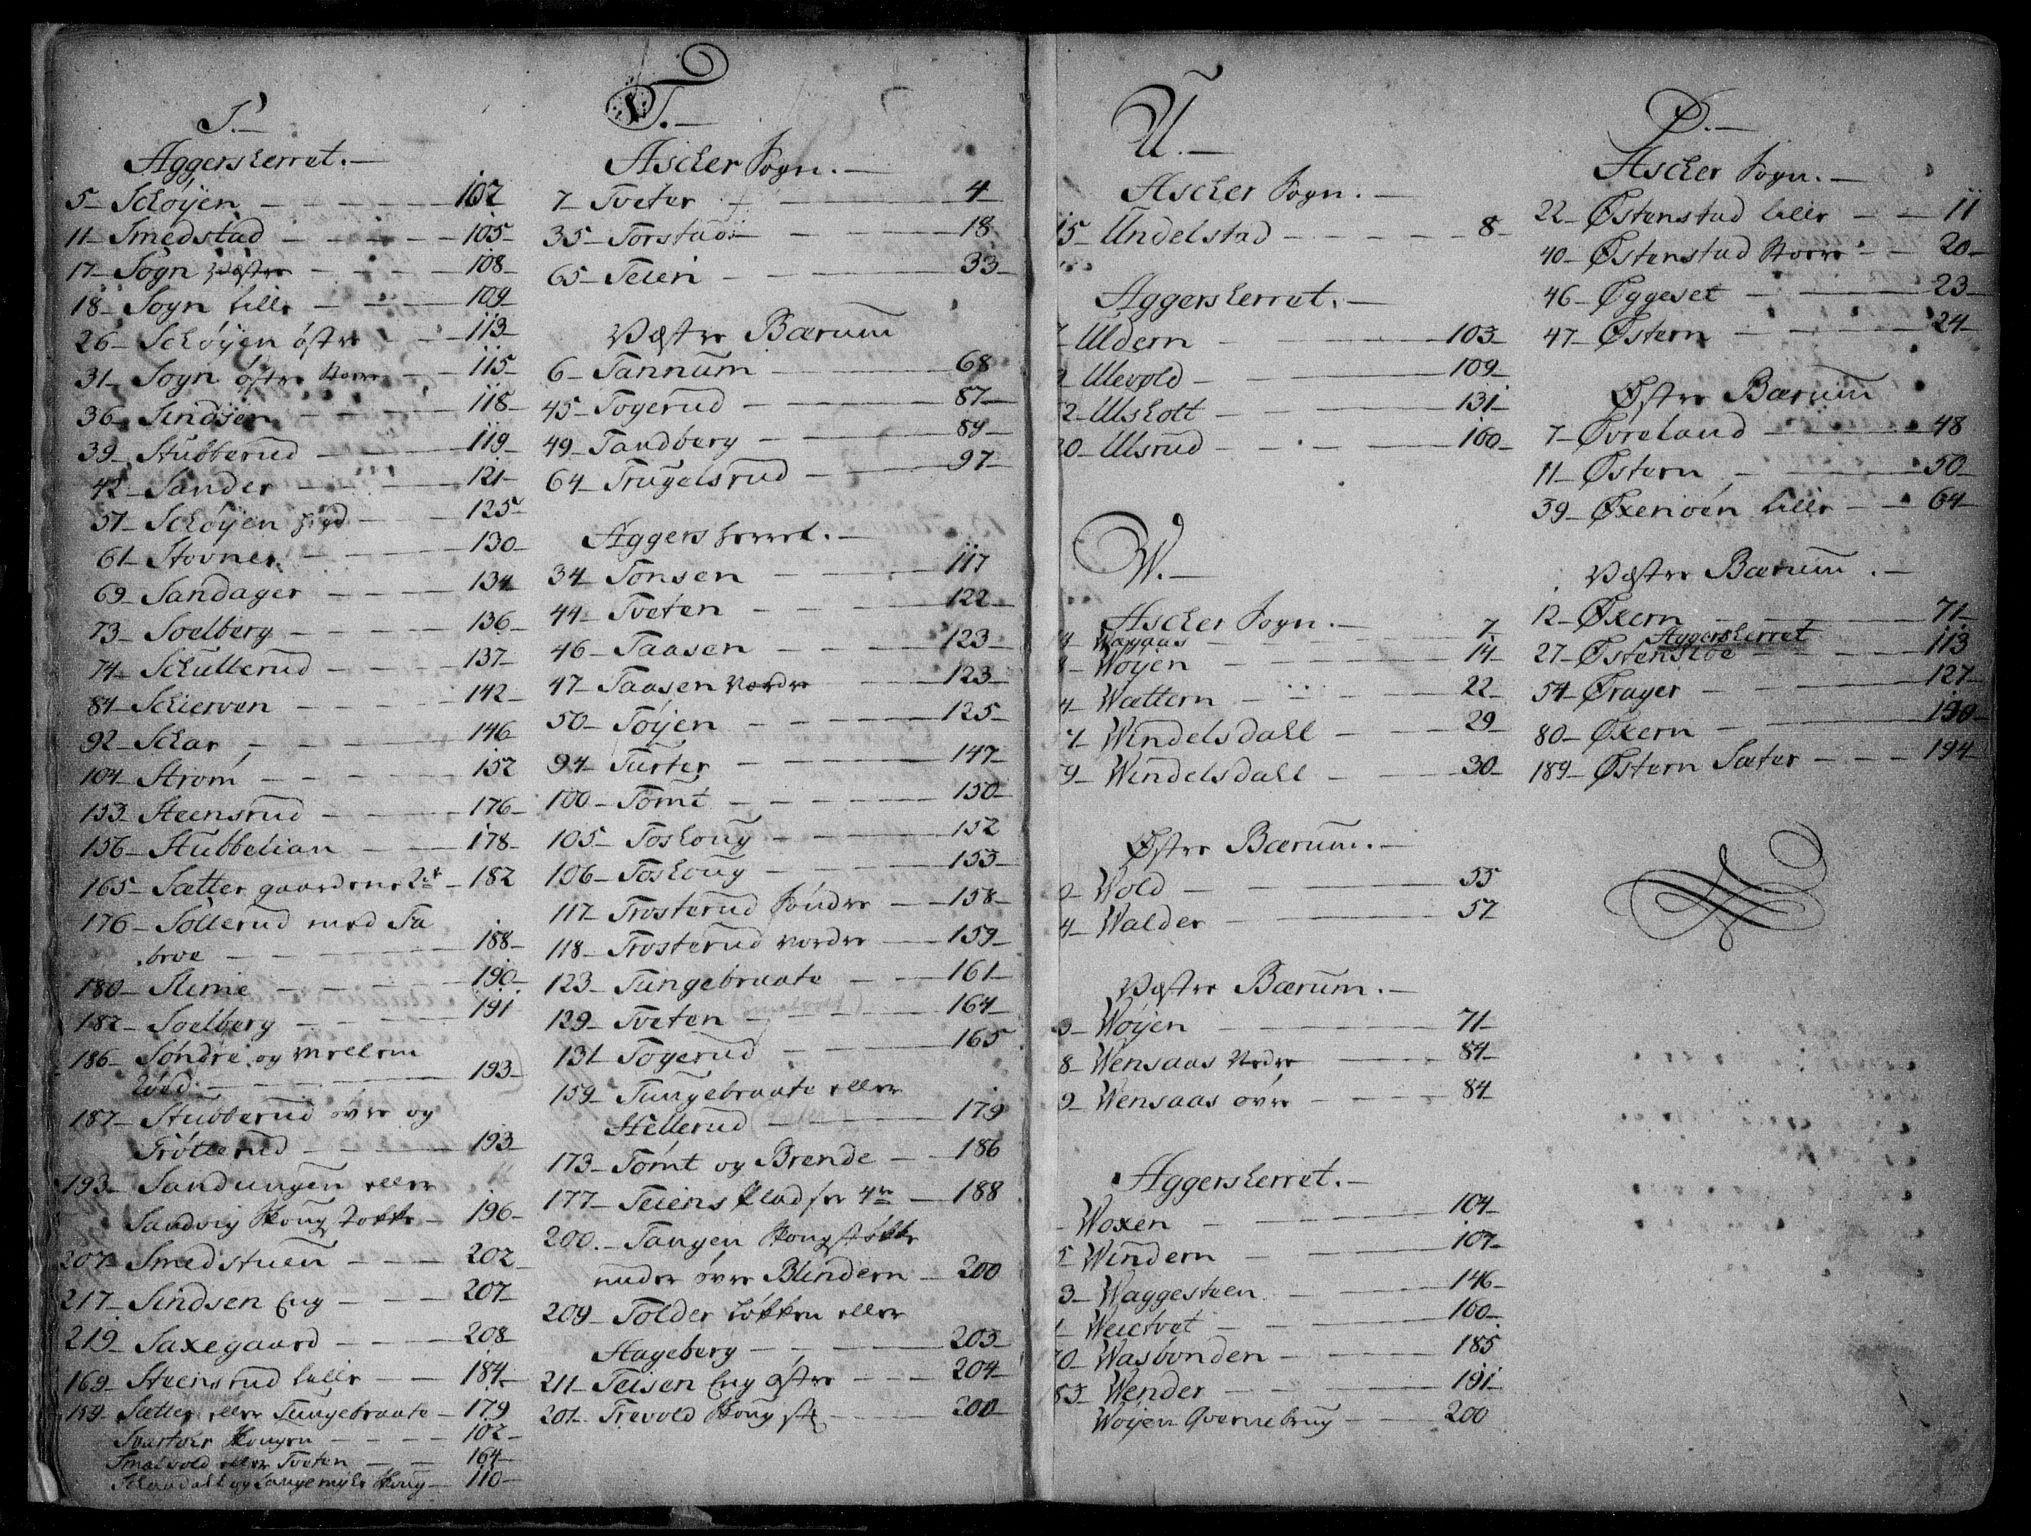 S.
Aggersherret.
5 Schöÿen 102
11 Smedstad 105
17 Sogn Vestre 108
18 Sogn lille 109
26 Schöÿen östre 113
31 Sogn östre Store 115
36 Sindsen 118
39 Stubberud 119
42 Sander 121
51 Schöÿen 125
61 Stovner 130
69 Sandager 134
73 Soelberg 136
74 Schullerud 137
84 Schierven 142
92 Schar 146
104 Ström 152
153 Steensrud 176
156 Stubbelian 178
165 Sætter gaardene 2de 182
176 Söllerud med Ta
broe 188
180 Slime 190
182 Soelberg 191
186 Söndre og mellem
193
187 Stubberud övre og
Tröllerud 193
193 Sandungen eller
Sandvig Skoug Løkke 196
207 Smedstuen 202
217 Sindsen Eng 207
219 Saxegaard 208
169 Steensrud lille 184
159 Sætter eller Tungebraate 179
Svartoer Skougen 102
Smalvold eller Tveten 164
og Langemyhr Skoug 110
T.
Ascher Sogn.
7 Tveter 4
35 Torstad 18
65 Teien 33
Vestre Bærum
6 Tannum 68
45 Togerud 87
49 Tandberg 89
64 Trugelsrud 97
Aggersherret.
34 Tonsen 117
44 Tveten 122
46 Taasen 123
47 Taasen Nordre 123
50 Töÿen 125
94 Turter 147
100 Tomt 150
105 Toskoug 152
106 Toskoug 153
117 Trosterud Söndre 158
118 Trosterud Nordre 159
123 Tungebraate 161
129 Tveten 164
131 Togerud 165
159 Tungebraate eller
Hellerud 179
173 Tomt og Brende 186
177 Teiens Pladser 4re 188
200 Tangen Skougstökke
under övre Blindern 200
209 Tolder Løkken eller
Hageberg 203
211 Teisen Eng östre 204
201 Trevold Skoug st. 200
U.
Ascher Sogn.
15 Undelstad 8
Aggersherret.
7 Uldern 103
Ulevold 109
2 Ulsholt 131
20 Ulsrud 160
W.
Ascher Sogn. 7
Wogaas
8 Wöÿen 14
4 Wættern 22
7 Windelsdall 29
9 Windelsdall 30
Østre Bærum.
0 Wold 55
4 Walder 57
Vestre Bærum.
3 Wöÿen 71
8 Wensaas Nedre 84
9 Wensaas övre 84
Aggersherret.
Woxen 104
5 Windern 107
3 Waggesteen 146
1 Weitvet 160
70 Wasbonden 185
83 Wender 191
Woÿen Qvernebrug 200
Ø.
Ascher Sogn.
22 Østenstad lille 11
40 Østenstad Store 20
46 Øggeset 23
47 Østern 24
Østre Bærum
7 Øvreland 48
11 Østern 50
39 Øxenöen lille 64
Vestre Bærum.
12 Øxern 71
Aggersherret
27 Østensiöe 113
54 Ørager 127
80 Øxern 190
189 Østern Sæter 194